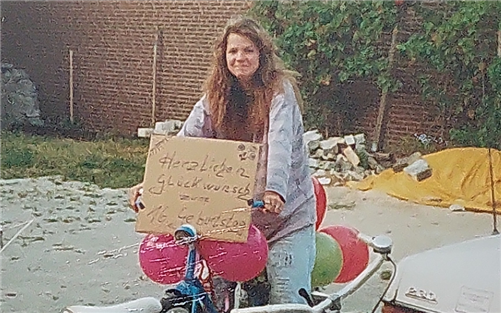 Herzlichen
Glückwunsch
zum
16. Geburtstag